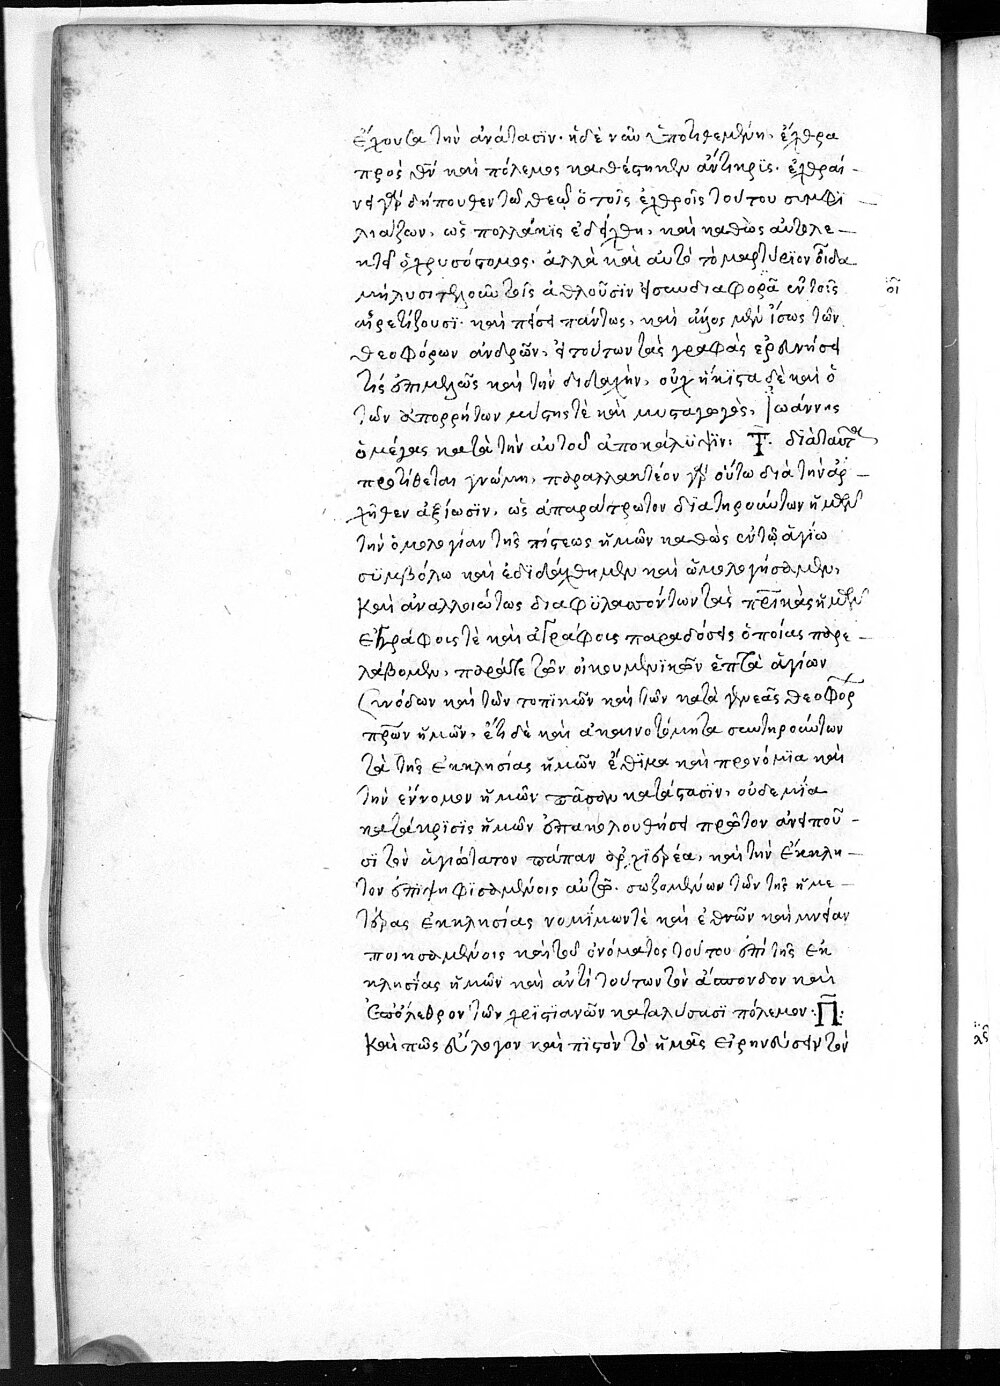 ἔχουσα τὴν ἀνάτασϊν· ἡ δὲ νῦν ὑποτιθεμένη, ἔχθρα
πρὸς θν καὶ πόλεμος καθέστηκεν ἄντικρϊς· ἐχθραί-
νει γὰρ δήπουθεν τῶ θεῶ ὁ τοῖς ἐχθροῖς τούτου συμφϊ-
λιάζων, ὡς πολλάκϊς ἐδείχθη, καὶ καθὼς αὐτολε-
κτεῖ ὁ χρυσόστομος· ἀλλὰ καὶ αὐτὸ τὸ μαρτύριον οὐδα
μὴ λυσιτελοῦν τοῖς ἀθλοῦσϊν εἰσαυδιαφορᾶ ἐν τοῖς
αἱρετίζουσϊ· καὶ πείσει πάντως, καὶ ἄλλος μὲν ἴσως τῶν
θεοφόρων ἀνδρῶν, εἰ τούτων τὰς γραφὰς ἐρευνήσει
τίς ἐπιμελῶς καὶ τὴν διδαχὴν, οὐχ ἥκϊστα δὲ καὶ ὁ
τῶν ἀπορρήτων μύστης τὲ καὶ μυσταγωγὸς, Ἰωάννης
ὁ μέγας κατὰ τὴν αὐτοῦ ἀποκάλυψϊν: Τ. διὰ ταῦτα
προτίθεται γνώμη, παραλλακτέον γὰρ οὕτω διὰ τὴν ἀρ-
χῆθεν ἀξίωσϊν, ὡς ἀπαράτρωτον διατηρούντων ἡμῶν
τὴν ὁμολογίαν τῆς πίστεως ἡμῶν καθὼς ἐν τῶ ἁγίω
συμβόλω καὶ ἐδιδάχθημεν καὶ ὡμολογήσαμεν,
καὶ ἀναλλοιώτως διαφϋλαττόντων τὰς πρϊκὰς ἡμῶν
ἐγγράφοις τὲ καὶ ἀγράφοις παραδόσεις ὁποίας παρε-
λάβομεν, παράτε τῶν οἰκουμενϊκῶν ἑπτὰ ἁγίων
συνόδων καὶ τῶν τοπικῶν καὶ τῶν κατὰ γενεὰς θεοφόρ
πρων ἡμῶν, ἔτι δὲ καὶ ἀκαινοτόμητα συντηρούντων
τὰ τῆς ἐκκλησίας ἡμῶν ἔθϊμα καὶ προνόμια καὶ
τὴν ἔννομον ἡμῶν πᾶσαν κατάστασϊν, οὐδεμία
κατάκρϊσϊς ἡμῶν ἐπακολουθήσει πρῶτον ἀνειποῦ-
σϊ τὸν ἁγιώτατον πάπαν ἀρχϊερέα, καὶ τὴν ἔκκλη-
τον ἐπιψηφϊσαμένοις αὐτῶ· σωζομένων τῶν τῆς ἡμε-
τέρας ἐκκλησίας νομίμων τὲ καὶ ἐθῶν καὶ μνείαν
ποιησαμένοις καὶ τοῦ ὀνόματος τούτου ἐπὶ τῆς ἐκ
κλησίας ἡμῶν καὶ ἀντὶ τούτων τὸν ἄσπονδον καὶ
ἐπόλεθρον τῶν χριστιανῶν καταλύσασϊ πόλεμον: Π:
Καὶ πῶς εὔλογον καὶ πιστὸν τὸ ἡμᾶς εἰρηνεύσειν τὸν